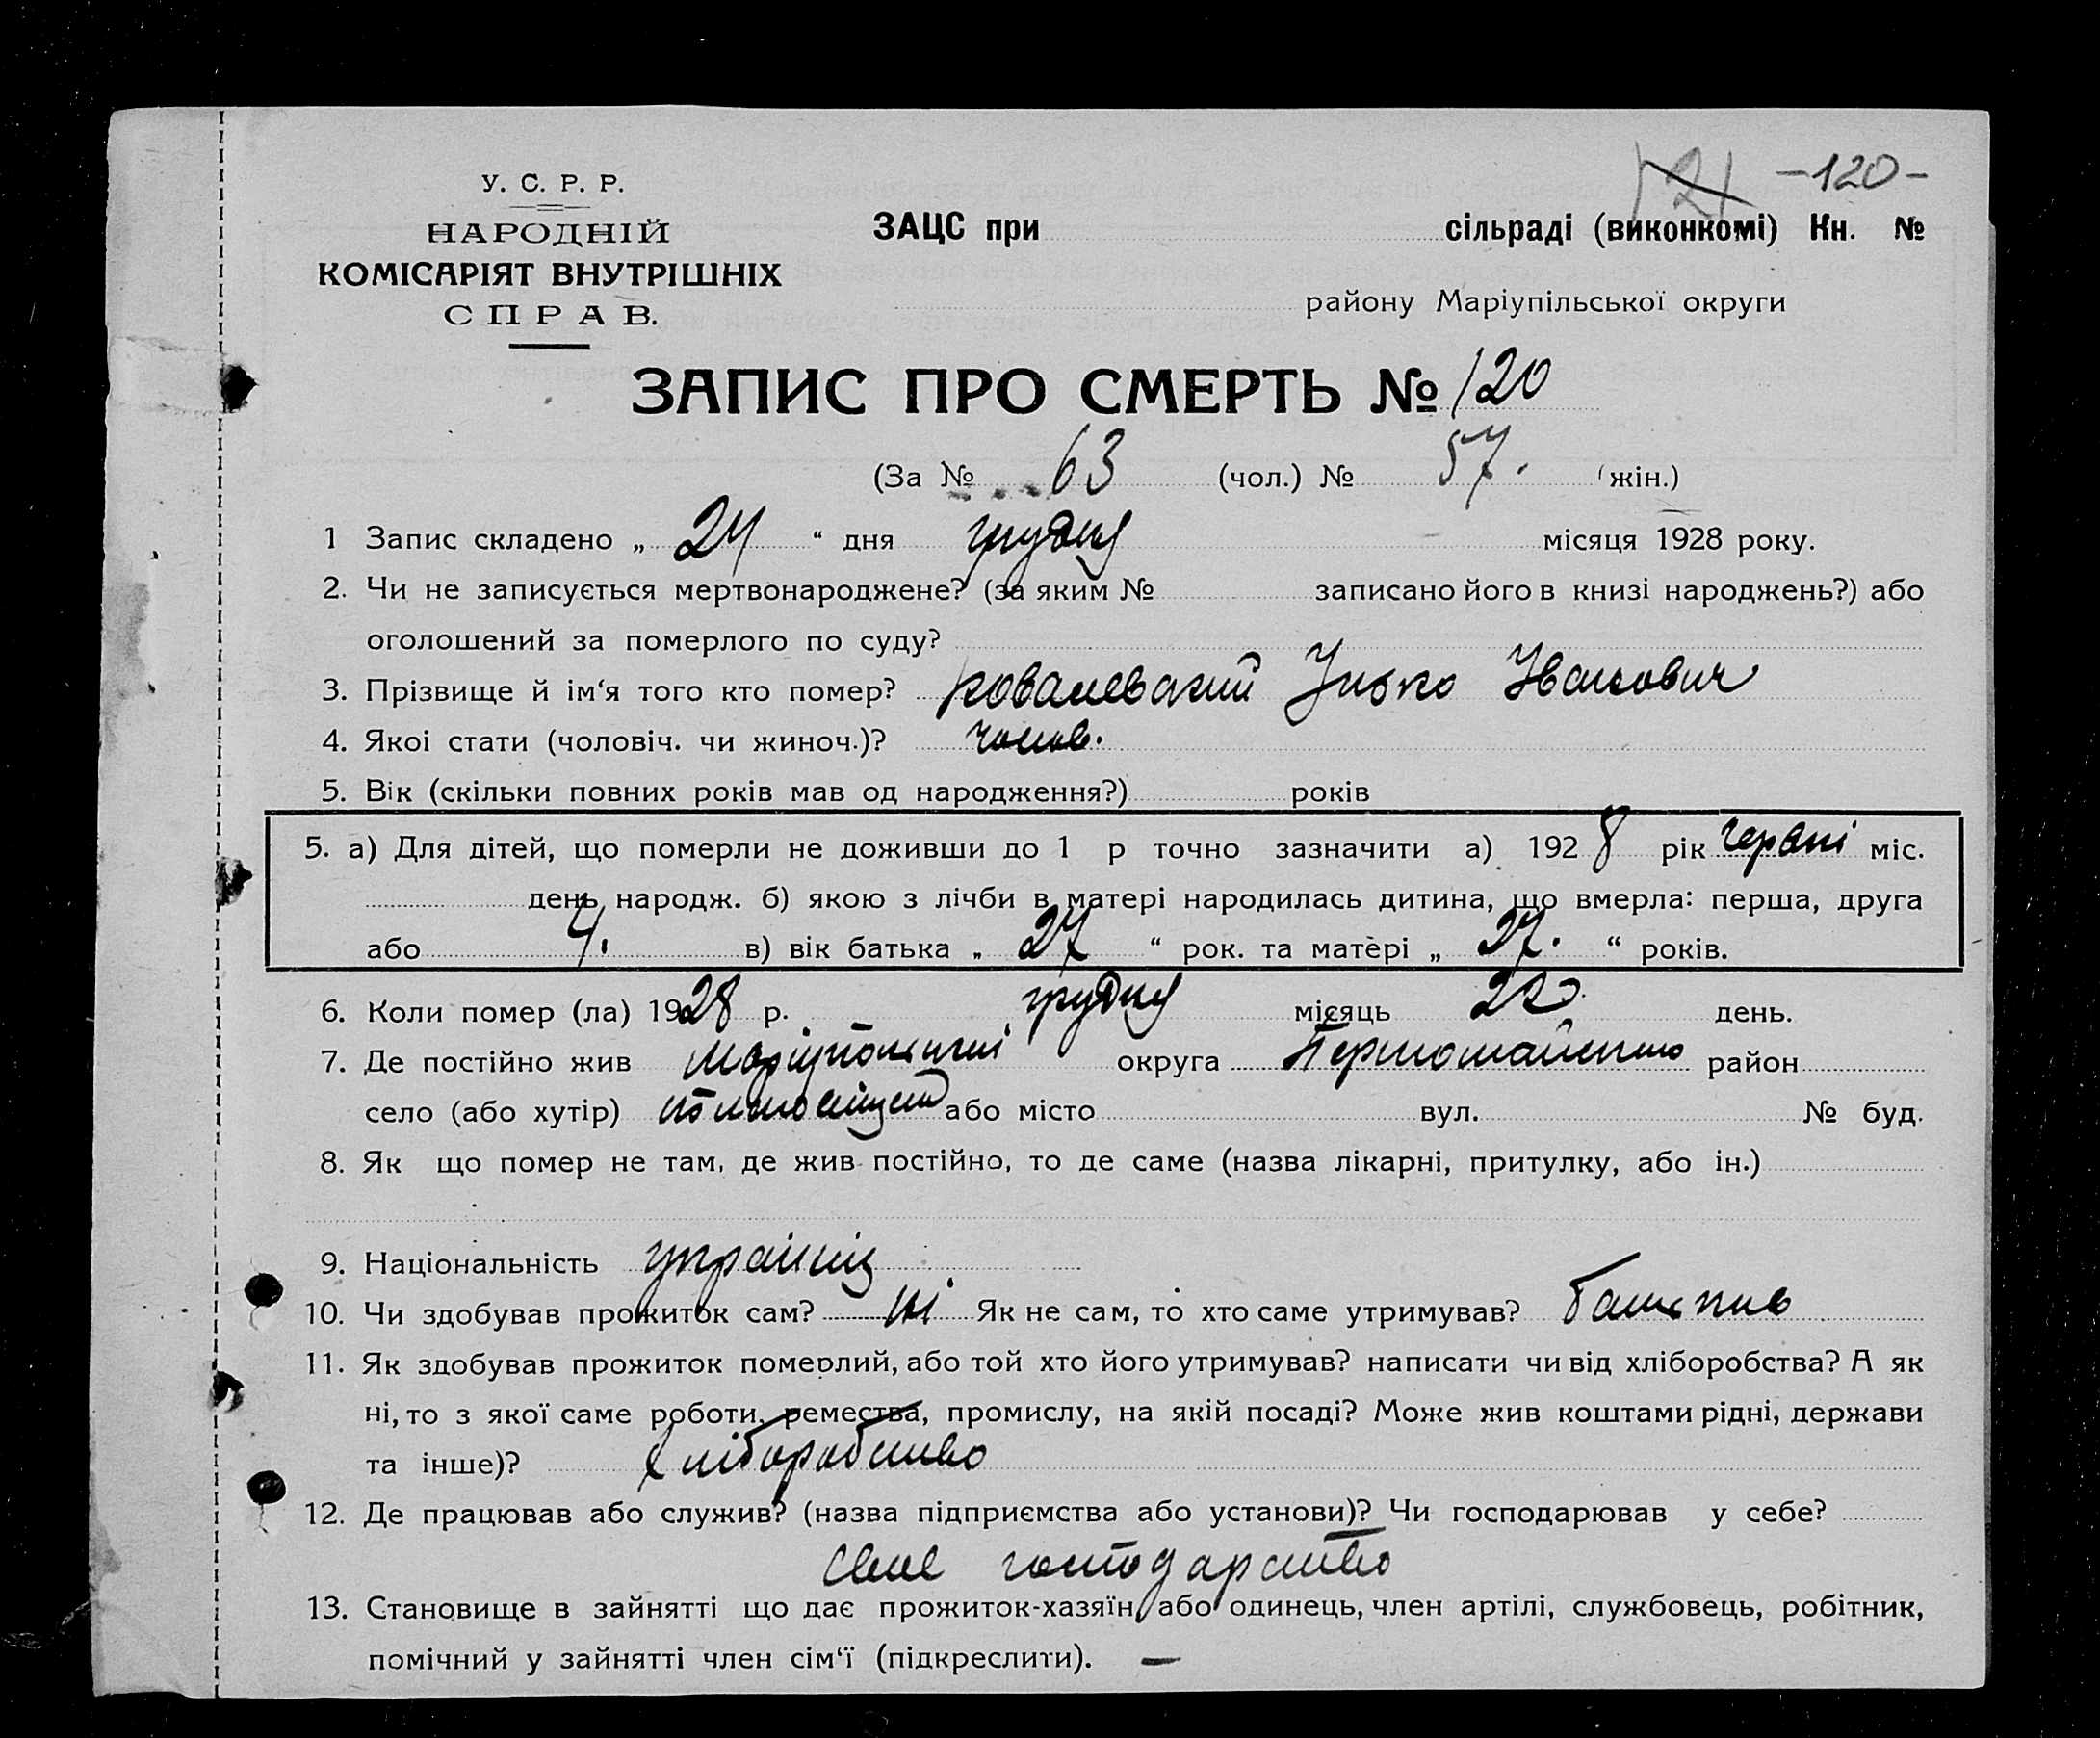 121 -120-
У. С. Р. Р.
НАРОДНІЙ
КОМІСАРІЯТ ВНУТРІШНІХ
СПРАВ.
ЗАЦС при сільраді (виконкомі) Кн. №
району Маріупільської округи
ЗАПИС ПРО СМЕРТЬ № 120
(За № 63 (чол.) № 57. (жін.)
1 Запис складено „ 24 “ дня грудня місяця 1928 року.
2. Чи не записується мертвонароджене? (за яким № записано його в книзі народжень?) або
оголошений за померлого по суду?
3. Прізвище й ім‘я того кто помер? Ковалевский Іванович
4. Якоі стати (чоловіч. чи жиноч.)? чолов.
5. Вік (скільки повних років мав од народження?) років
5. а) Для дітей, що померли не доживши до 1 р точно зазначити а) 1928 рік червні міс.
день народж. б) якою з лічби в матері народилась дитина, що вмерла: перша, друга
або 4. в) вік батька „ 27 “ рок. та матері „ 27. “ років.
6. Коли помер (ла) 1928 р. грудня місяць 22 день.
7. Де постійно жив округа Першомайський район
село (або хутір) або місто вул. № буд.
8. Як що помер не там, де жив постійно, то де саме (назва лікарні, притулку, або ін.)
9. Національність українець
10. Чи здобував прожиток сам? ні Як не сам, то хто саме утримував? батьки
11. Як здобував прожиток померлий, або той хто його утримував? написати чи від хліборобства? А як
ні, то з якої саме роботи, ремества, промислу, на якій посаді? Може жив коштами рідні, держави
та інше)? Хліборобство
12. Де працював або служив? (назва підприємства або установи)? Чи господарював у себе?
своє господарство
13. Становище в зайнятті що дає прожиток-хазяїн або одинець, член артілі, службовець, робітник,
помічний у зайнятті член сім‘ї (підкреслити). —